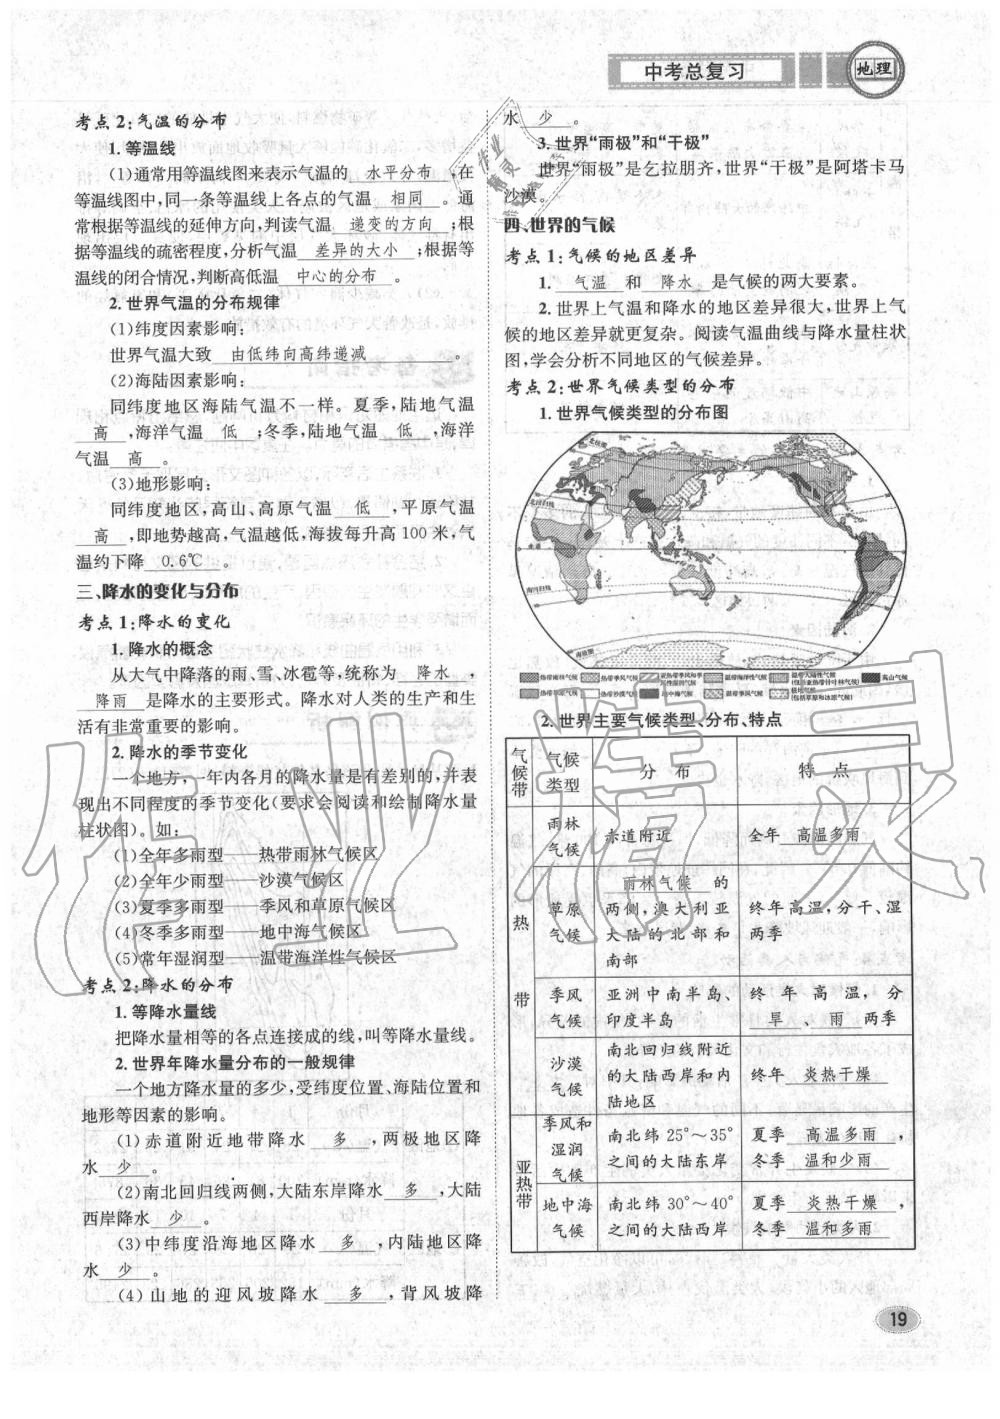 中考总复习
地理
考点2:气温的分布
1.等温线
(1)通常用等温线图来表示气温的 水平分布 ,在
等温线图中,同一条等温线上各点的气温 相同 。通
常根据等温线的延伸方向,判读气温 递变的方向 ;根
据等温线的疏密程度,分析气温 差异的大小 ;根据等
温线的闭合情况,判断高低温 中心的分布 。
2.世界气温的分布规律
(1)纬度因素影响:
世界气温大致 由低纬向高纬递减 。
(2)海陆因素影响:
同纬度地区海陆气温不一样。夏季,陆地气温
高 ,海洋气温 低 ;冬季,陆地气温 低 ,海洋
气温 高 。
(3)地形影响:
同纬度地区,高山、高原气温 低 ,平原气温
高 ,即地势越高,气温越低,海拔每升高100米,气
温约下降 0.6℃ 。
三、降水的变化与分布
考点1:降水的变化
1.降水的概念
从大气中降落的雨、雪、冰雹等,统称为 降水 ,
降雨 是降水的主要形式。降水对人类的生产和生
活有非常重要的影响。
2.降水的季节变化
一个地方,一年内各月的降水量是有差别的,并表
现出不同程度的季节变化(要求会阅读和绘制降水量
柱状图)。如:
(1)全年多雨型——热带雨林气候区
(2)全年少雨型——沙漠气候区
(3)夏季多雨型——季风和草原气候区
(4)冬季多雨型——地中海气候区
(5)常年湿润型——温带海洋性气候区
考点2:降水的分布
1.等降水量线
把降水量相等的各点连接成的线,叫等降水量线。
2.世界年降水量分布的一般规律
一个地方降水量的多少,受纬度位置、海陆位置和
地形等因素的影响。
(1)赤道附近地带降水 多 ,两极地区降
水 少 。
(2)南北回归线两侧,大陆东岸降水 多 ,大陆
西岸降水 少 。
(3)中纬度沿海地区降水 多 ,内陆地区降
水 少 。
(4)山地的迎风坡降水 多 ,背风坡降
水 少 。
3.世界“雨极”和“干极”
世界“雨极”是乞拉朋齐,世界“干极”是阿塔卡马
沙漠。
四、世界的气候
考点1:气候的地区差异
1. 气温 和 降水 是气候的两大要素。
2.世界上气温和降水的地区差异很大,世界上气
候的地区差异就更复杂。阅读气温曲线与降水量柱状
图,学会分析不同地区的气候差异。
考点2:世界气候类型的分布
1.世界气候类型的分布图
北极圈
北回归线
赤道
南回归线
南极圈
热带雨林气候 热带季风气候 亚热带季风和季风性湿润气候 温带海洋性气候 温带大陆性气候(包括亚寒带针叶林气候) 高山气候
热带草原气候 热带沙漠气候 地中海气候 温带季风气候 极地气候(包括苔原和冰原气候)
2.世界主要气候类型、分布、特点
气候带 气候类型 分布 特点
热带 雨林气候 赤道附近 全年 高温多雨
草原气候 雨林气候 的两侧,澳大利亚大陆的北部和南部 终年高温,分干、湿两季
季风气候 亚洲中南半岛、印度半岛 终年高温,分 旱 、雨 两季
沙漠气候 南北回归线附近的大陆西岸和内陆地区 终年 炎热干燥
亚热带 季风和湿润气候 南北纬25°～35°之间的大陆东岸 夏季 高温多雨 ,冬季 温和少雨
地中海气候 南北纬30°～40°之间的大陆西岸 夏季 炎热干燥 ,冬季 温和多雨
19
作业精灵